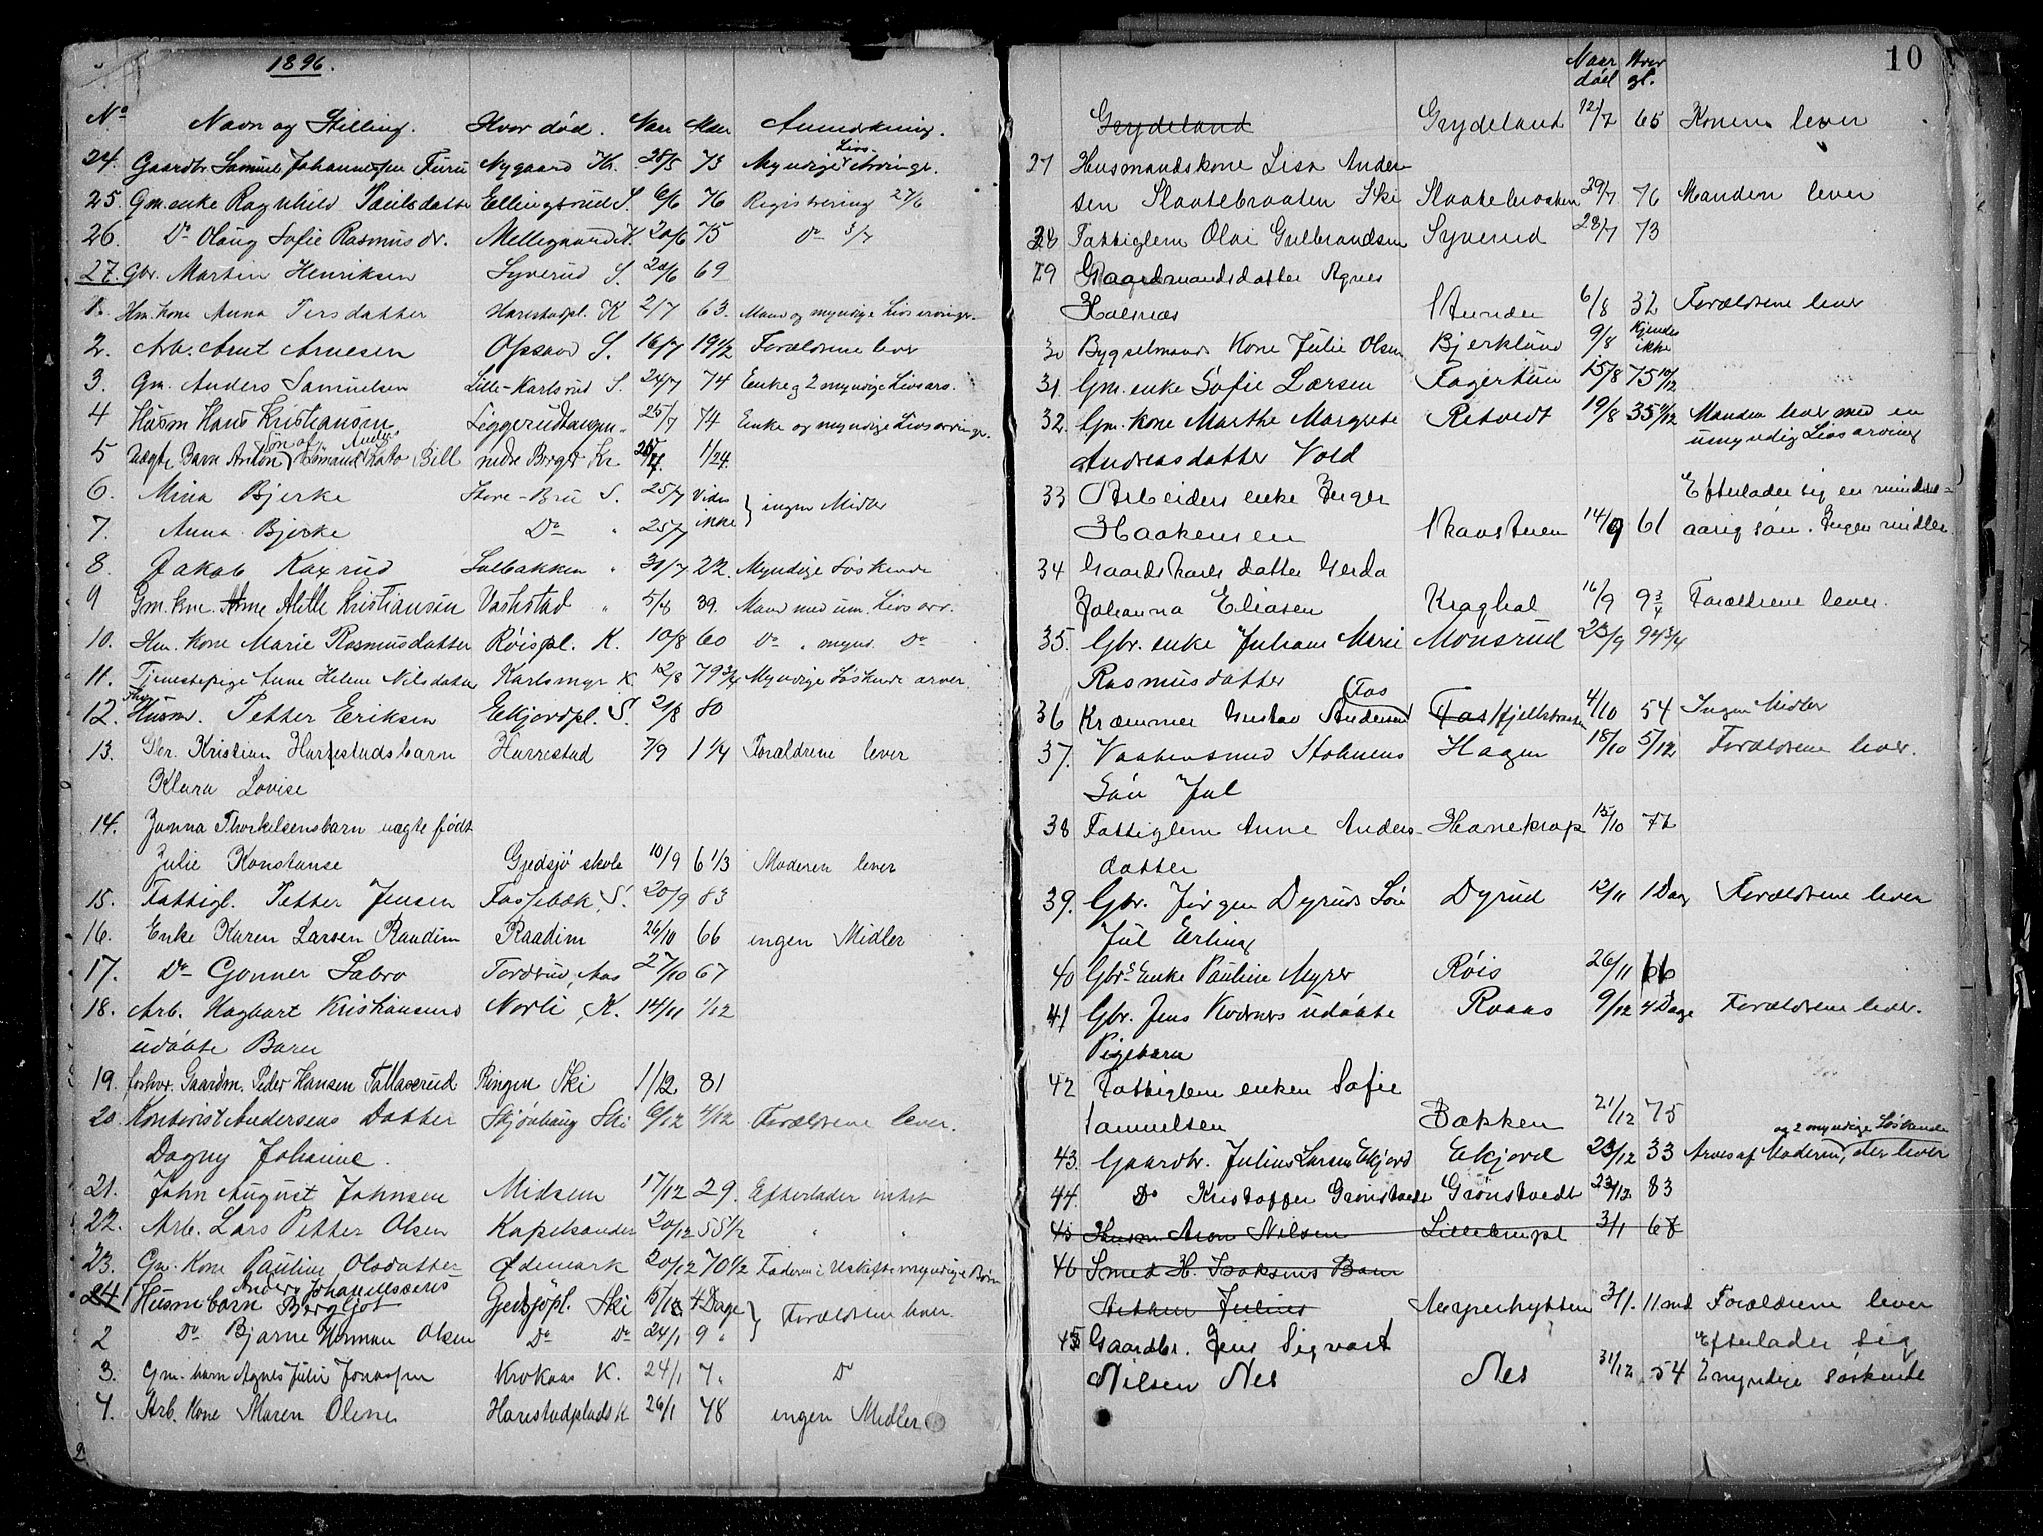 1896.
No Navn og Stilling. Hvor død. Naar Alder Anmærkning.
24. Gaardbr. Samuel Johannessen Furu Nygaard Kr. 28/5 73 Myndige Livs Arvinge.
25. Gm. enke Ragnhild Paulsdatter Ellingsrud S. 6/6 76 Registrering 27/6
26. Do Olaug Sofie Rasmusdr. Mellegaard K. 20/6 75 Do 3/7
27. Gbr. Martin Henriksen Syverud S. 20/6 69
1. Hm. kone Anna Persdatter Harestadpl. K 2/7 63. Mand og myndige Livsarvinge.
2. Arb. Arnt Arnesen Opsand S. 16/7 19 1/2 Forældrene lever
3. Gm. Anders Samuelsen Lille-Karlsrud S. 24/7 74 Enke og 2 myndige Livsarv.
4 Husm Hans Kristiansen, Liggerudtangen. 25/7 74 Enke og myndige Livsarvinge.
5 Uægte Barn Anton Søn af Kato Bill nedre Borge Kr 1/24.
6. Mina Bjerke Store-Bru S. 25/7 Vides ingen Midler
7. Anna Bjerke Do " 25/7 ikke
8. Jakob Kaxrud Solbakken " 31/7 22. Myndige Søskende
9 Gm. kne. Alette Kristiansen Vastestad " 5/8 39. Mand med um. Livsarv.
10. Hm. kone Marie Rasmusdatter Røispl. K. 10/8 60 Do " mynd. Do
11. Tjenestepige Anne Helene Nilsdatter Karlsmyr K. 12/8 79 3/4 Myndige Søskende arver.
12. Husm. Petter Eriksen Ekjordpl. S. 2/8 80
13. Gbr. Kristian Harrestadsbarn Harrestad 7/9 1 1/4 Forældrene lever
Klara Lovise
14. Janna Thorkelsensbarn uægte født
Julie Konstanse Gjedsjø skole 10/9 6 1/3 Moderen lever
15. Fattigl. Petter Jensen Fossebæk, S. 20/9 83
16. Enke Karen Larsen Raadim Raadim 26/10 66 ingen Midler
17. Do Gonner Sabro Tordsrud, Aas 27/10 67
18. Arb. Hagbart Kristiansens Norli, K. 14/11 1/12
udøbte Barn
19. forhv. Gaardm. Peder Hansen Tallaksrud Ringen Ski 1/12 81
20. Kontorist Andersens Datter Skjønhaug Ski 6/12 4/12 Forældrene lever.
Dagny Johanne.
21. John August Johnsen Midsem 17/12 29. Efterlader intet
22. Arb. Lars Petter Olsen Kapelsander 20/12 55 1/2 " "
23. Gm. Kone Pauline Olsdatter Ødemark 20/12 70 1/2 Faderen i Uskifte myndige Børn
Anders Johannessens
24 1 Husm barn Borgljot Gjedsjøpl. Ski 15/12 4 Dage Forældrene lever.
2 Do Bjarne Herman Olsen Do Do 24/1 9 "
3. Gm. barn Agnes Julie Jonassen Krokaas K. 24/1 7 " Do
4. Arb. Kone Maren Oline Harestadplads K 26/1 48 ingen Midler
10
Naar død Hvor gl.
Grydeland Grydeland 12/7 65 Konen lever
27 Husmandskone Lisa Ander-
sen Slaatebraaten Ski Slaatebraaten 29/7 76 Manden lever
28 Fattiglem Olai Gulbrandsen Syverud 28/7 73
29 Gaardmandsdatter Agnes
Holsnæs Stunder 6/8 32 Forældrene lever
30 Bygselmands Kone Julie Olsen Bjerklund 9/8 Kjendes ikke
31 Gm. enke Sofie Larsen Fagertun 15/8 75 10/12
32. Gm. kone Marthe Margrete Retvedt 19/8 35 11/12 Manden lever med en
umyndig Livsarving
Andreasdatter Vold
33 Arbeiders enke Inger Efterlader sig en mindre-
Haakensen Skaustuen 14/9 61 aarig søn. Ingen midler
34 Gaardskarls datter Gerda
Johanna Eliasen Kraghal 16/9 9 3/4 Forældrene lever.
35. Gbr. enke Juliane Marie Monsrud 23/9 94 3/4
Rasmusdatter
36 Kræmmer Gustav Andersen Fos Fos Hjellebraaten 4/10 54 Ingen Midler
37. Vaabensmed Holmens Hagen 18/10 5/12 Forældrene lever.
Søn Jul
38 Fattiglem Anne Anders- Hanekrap 15/10 77
datter
39. Gbr. Jørgen Dyruds Søn Dyrud 12/11 1 Dag Forældrene lever
Jul Erling
40 Gbrs Enke Pauline Myrer Røis 26/11 66
41 Gbr. Jens udøbte Raaas 9/12 4 Dage Forældrene lever.
Pigebarn
42 Fattiglem enken Sofie
Samuelsen Bakken 21/12 75
og 2 myndige Søskende
43. Gaardbr. Julius Larsen Ekjord Ekjord 23/12 33 Arves af Moderen, der lever
44. Do Kristoffer Grønstvedt Grønstvedt 23/12 83
45 Husm. Aron Nilsen Lillebrupl 3/1 67
46 Smed H. Isaksens Barn
Arthur Julius Myrerhytten 3/1. 11 md Forældrene lever
45 Gaardbr. Jens Sigvart Efterlader sig
Nilsen Nes Nes 31/12 54 2 myndige søskende